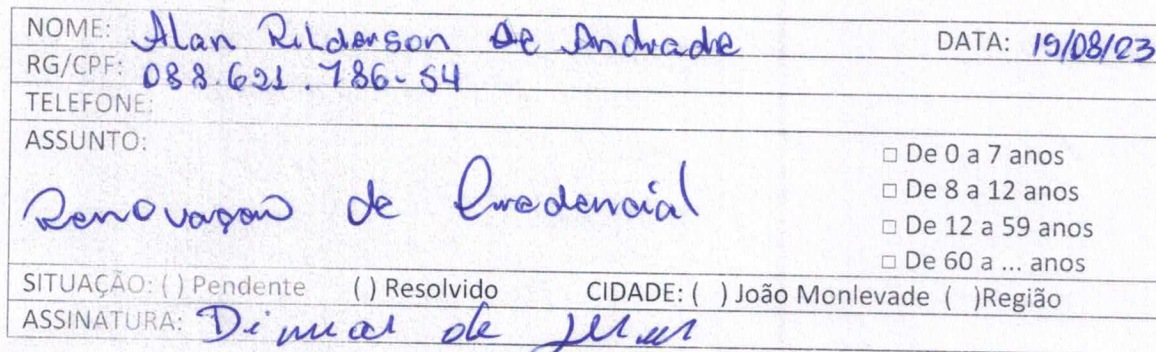 NOME: Alan Rilderson de Andrade DATA: 15/08/23
RG/CPF: 088.621.786-54
TELEFONE:
ASSUNTO:
Renovação de Credencial
□ De 0 a 7 anos
□ De 8 a 12 anos
□ De 12 a 59 anos
□ De 60 a ... anos
SITUAÇÃO: ( ) Pendente ( ) Resolvido CIDADE: ( ) João Monlevade ( )Região
ASSINATURA: de